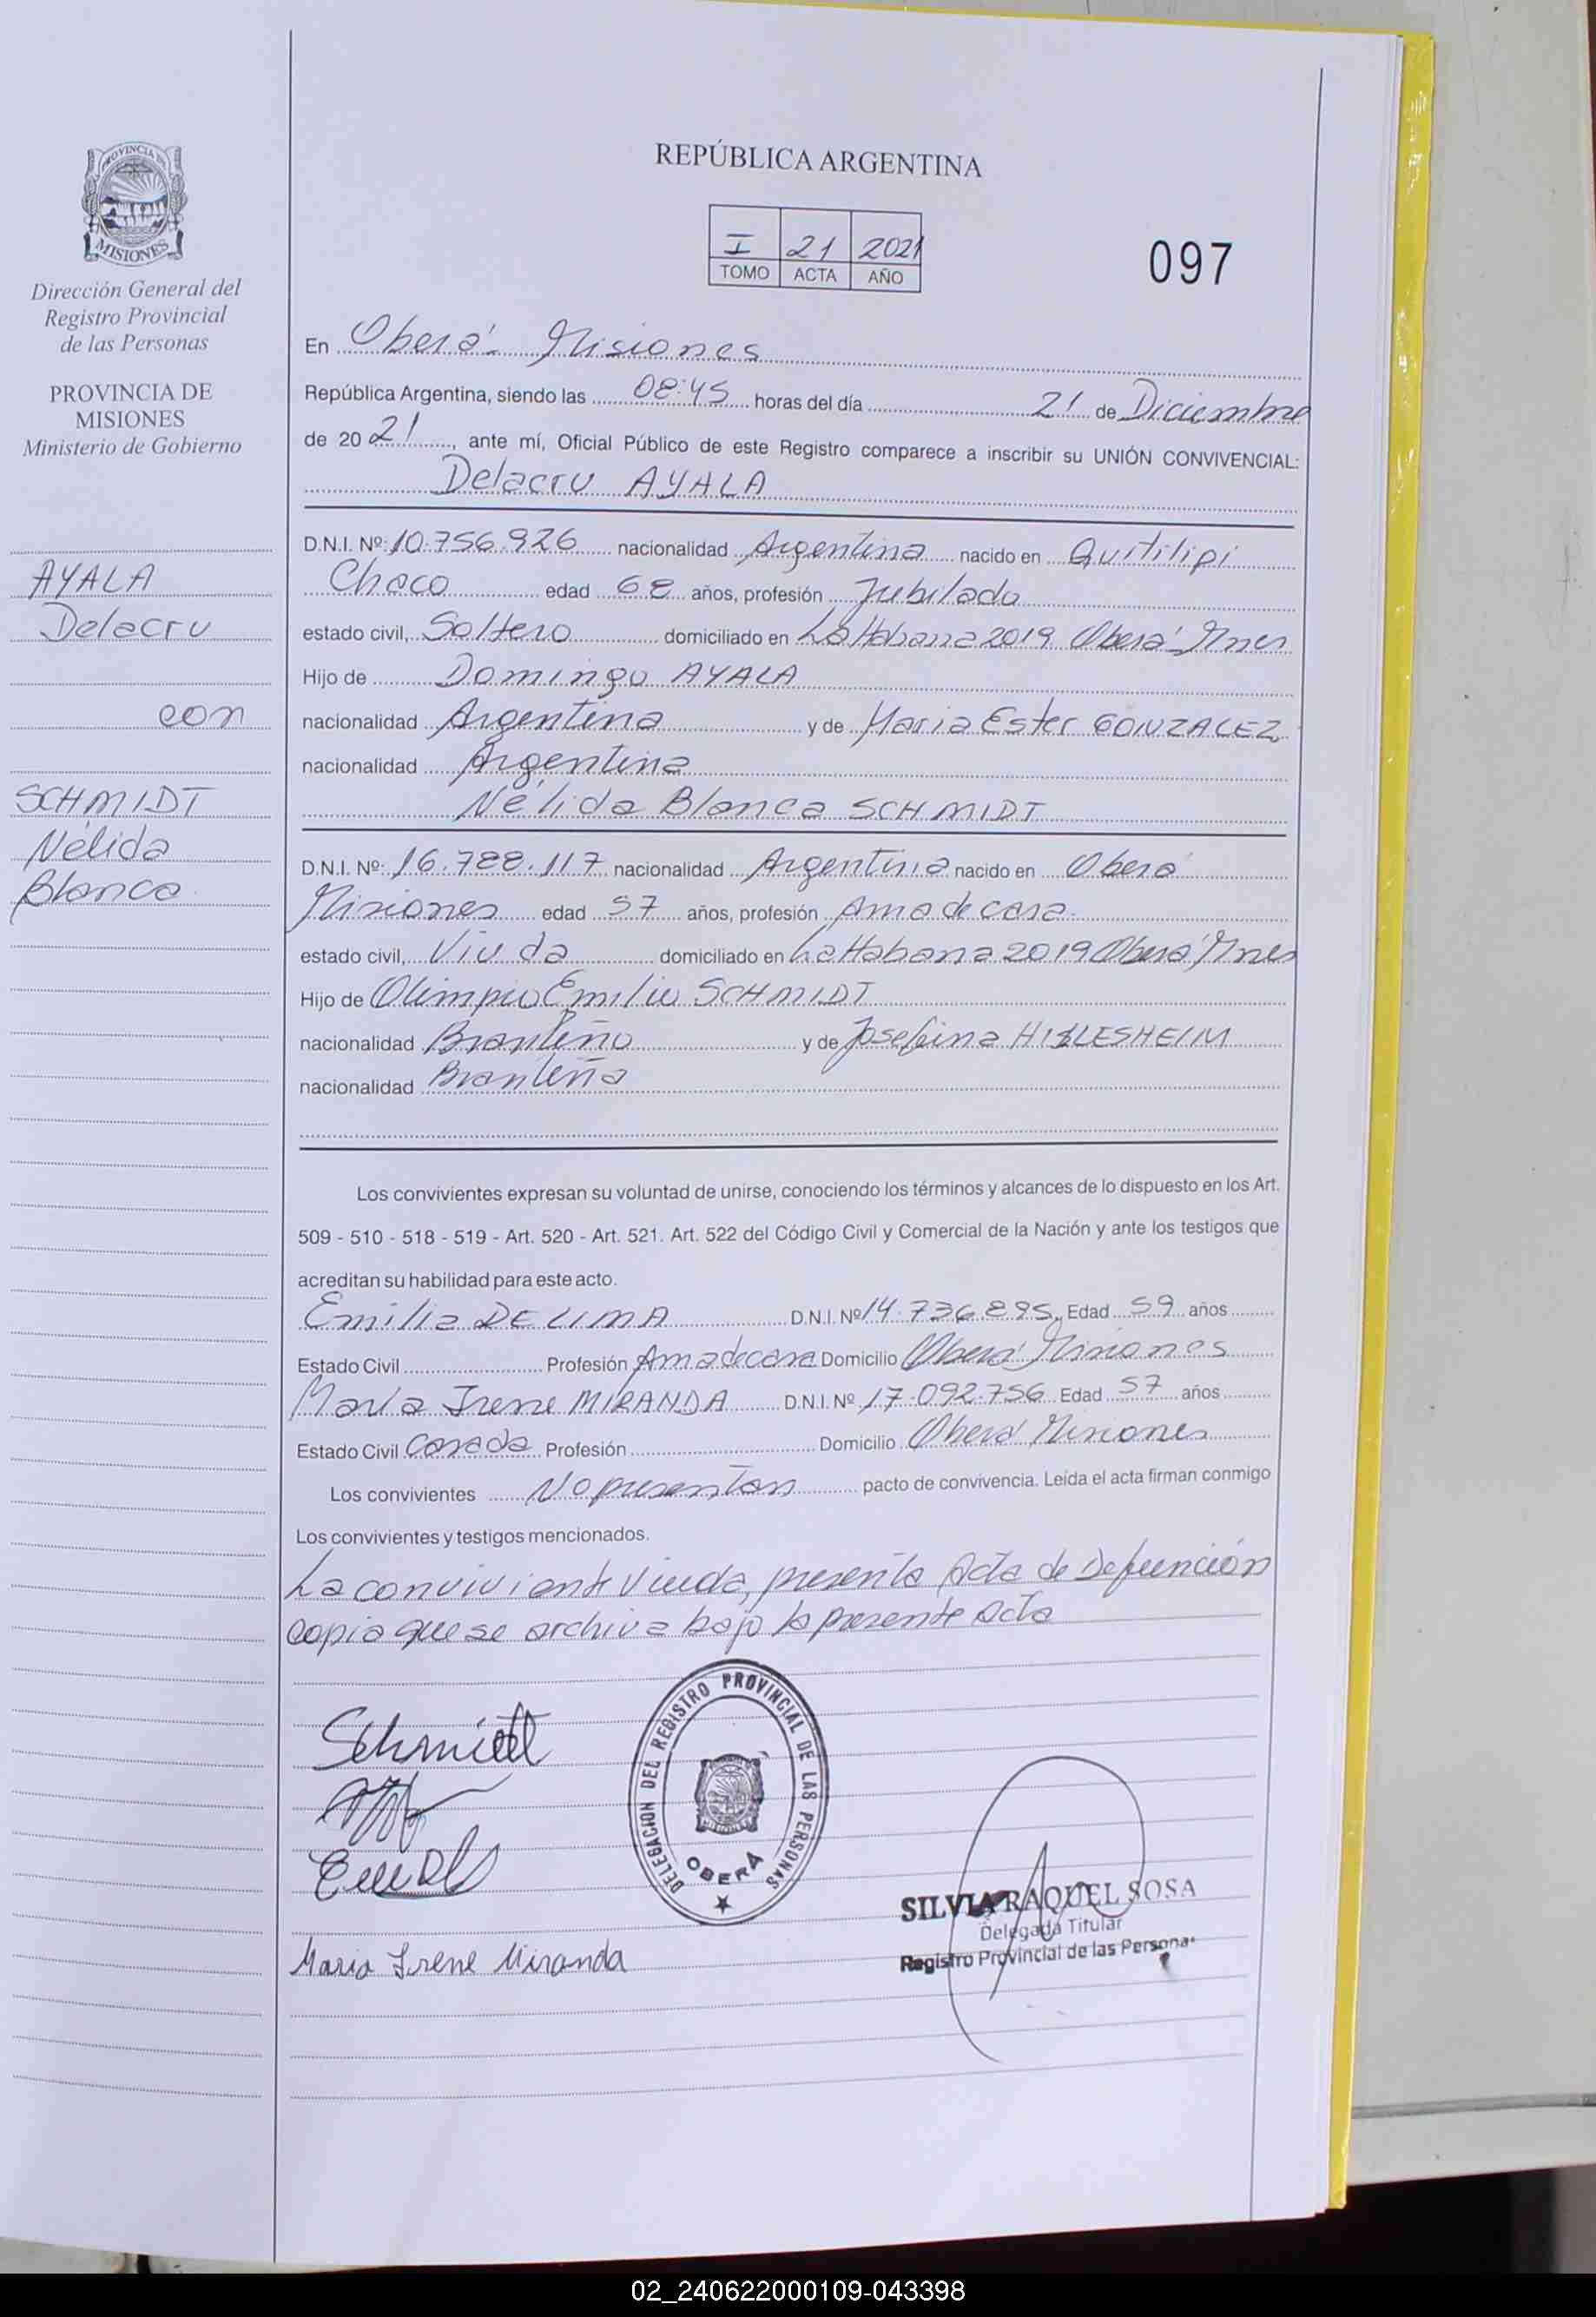 PROVINCIA DE
MISIONES
Dirección General del
Registro Provincial
de las Personas
PROVINCIA DE
MISIONES
Ministerio de Gobierno
AYALA
Delacru
con
SCHMIDT
Nélida
Blanca
REPÚBLICA ARGENTINA
I 21 2021
TOMO ACTA AÑO
097
En Oberá Misiones
República Argentina, siendo las 08:45 horas del día 21 de Diciembre
de 20 21, ante mí, Oficial Público de este Registro comparece a inscribir su UNIÓN CONVIVENCIAL:
Delacru AYALA
D.N.I. Nº: 10.756.926 nacionalidad Argentina nacido en Quitilipi
Chaco edad 68 años, profesión Jubilado
estado civil, Soltero domiciliado en La Habana 2019 Oberá Mnes
Hijo de Domingo AYALA
nacionalidad Argentina y de Maria Ester GONZALEZ
nacionalidad Argentina
Nélida Blanca SCHMIDT
D.N.I. Nº: 16.788.117 nacionalidad Argentina nacido en Oberá
Misiones edad 57 años, profesión Ama de casa
estado civil, Viuda domiciliado en La Habana 2019 Oberá Mnes
Hijo de Olimpio Emilio SCHMIDT
nacionalidad Brasileño y de Josefina
nacionalidad Brasileña
Los convivientes expresan su voluntad de unirse, conociendo los términos y alcances de lo dispuesto en los Art.
509 - 510 - 518 - 519 - Art. 520 - Art. 521. Art. 522 del Código Civil y Comercial de la Nación y ante los testigos que
acreditan su habilidad para este acto.
Emilia DE LIMA D.N.I. Nº 14.736.895 Edad 59 años
Estado Civil Profesión Ama de casa Domicilio Oberá Misiones
María Irene MIRANDA D.N.I. Nº 17.092.756 Edad 57 años
Estado Civil Casada Profesión Domicilio Oberá Misiones
Los convivientes No presentan pacto de convivencia. Leída el acta firman conmigo
Los convivientes y testigos mencionados.
La conviviente viuda, presenta Acta de Defunción
copia que se archiva bajo la presente Acta
Schmidt
Maria Irene Miranda
DELEGACION DEL REGISTRO PROVINCIAL DE LAS PERSONAS
OBERÁ
SILVIA RAQUEL SOSA
Delegada Titular
Registro Provincial de las Personas
02_240622000109-043398